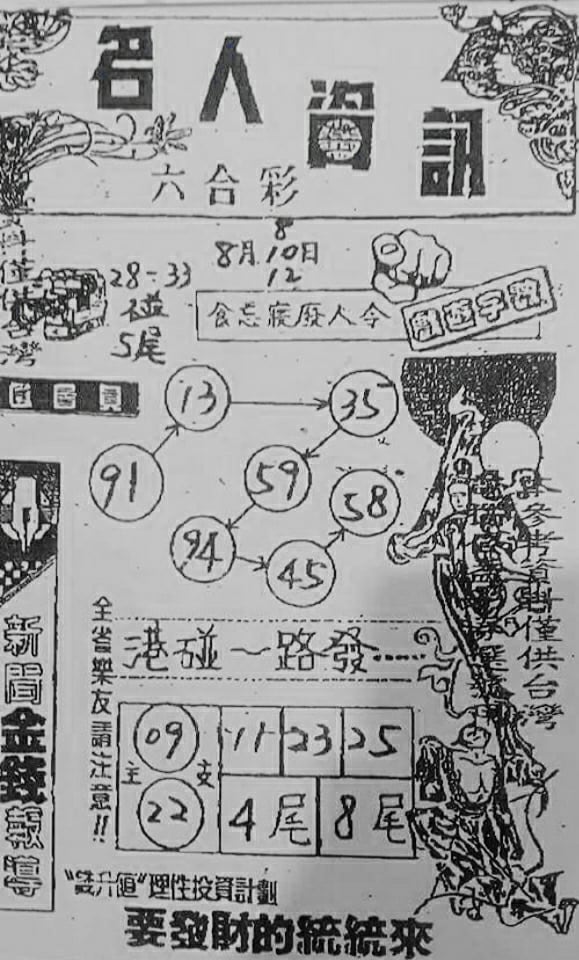 名人資訊
六合彩
8
8月10日
12
28-33
碰
5尾
食忘寢廢人令
數字遊戲
13
35
91
59
58
94
45
全省樂友請注意!!
港碰一路發……
主支
09
22
11
23
25
4尾
8尾
新聞金錢報導
本參考資料僅供台灣
"雙升值"理性投資計劃
要發財的統統來